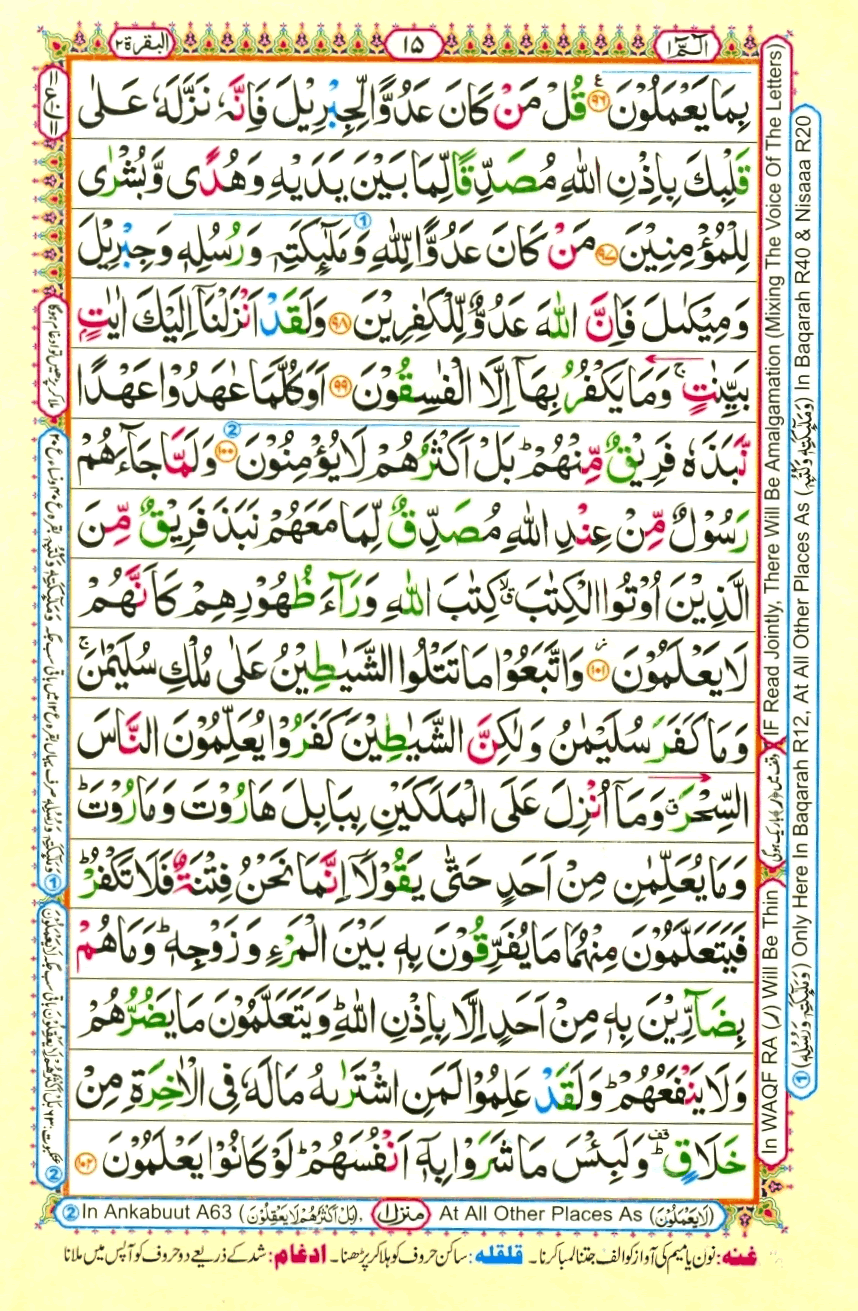 الٓمّٓ ١
١٥
البقرة ٢
بِمَا يَعْمَلُوْنَ ﴿٩٦﴾ قُلْ مَنْ كَانَ عَدُوًّا لِّجِبْرِيْلَ فَاِنَّهٗ نَزَّلَهٗ عَلٰى
قَلْبِكَ بِاِذْنِ اللّٰهِ مُصَدِّقًا لِّمَا بَيْنَ يَدَيْهِ وَهُدًى وَّبُشْرٰى
لِلْمُؤْمِنِيْنَ ﴿٩٧﴾ مَنْ كَانَ عَدُوًّا لِّلّٰهِ وَمَلٰٓئِكَتِهٖ وَرُسُلِهٖ وَجِبْرِيْلَ
وَمِيْكٰىلَ فَاِنَّ اللّٰهَ عَدُوٌّ لِّلْكٰفِرِيْنَ ﴿٩٨﴾ وَلَقَدْ اَنْزَلْنَاۤ اِلَيْكَ اٰيٰتٍۭ
بَيِّنٰتٍ ۚ وَمَا يَكْفُرُ بِهَاۤ اِلَّا الْفٰسِقُوْنَ ﴿٩٩﴾ اَوَكُلَّمَا عٰهَدُوْا عَهْدًا
نَّبَذَهٗ فَرِيْقٌ مِّنْهُمْ ؕ بَلْ اَكْثَرُهُمْ لَا يُؤْمِنُوْنَ ﴿١٠٠﴾ وَلَمَّا جَآءَهُمْ
رَسُوْلٌ مِّنْ عِنْدِ اللّٰهِ مُصَدِّقٌ لِّمَا مَعَهُمْ نَبَذَ فَرِيْقٌ مِّنَ
الَّذِيْنَ اُوْتُوا الْكِتٰبَ ۙۗ كِتٰبَ اللّٰهِ وَرَآءَ ظُهُوْرِهِمْ كَاَنَّهُمْ
لَا يَعْلَمُوْنَ ﴿١٠١﴾ وَاتَّبَعُوْا مَا تَتْلُوا الشَّيٰطِيْنُ عَلٰى مُلْكِ سُلَيْمٰنَ ۚ
وَمَا كَفَرَ سُلَيْمٰنُ وَلٰكِنَّ الشَّيٰطِيْنَ كَفَرُوْا يُعَلِّمُوْنَ النَّاسَ
السِّحْرَ ۗ وَمَاۤ اُنْزِلَ عَلَى الْمَلَكَيْنِ بِبَابِلَ هَارُوْتَ وَمَارُوْتَ ؕ
وَمَا يُعَلِّمٰنِ مِنْ اَحَدٍ حَتّٰى يَقُوْلَاۤ اِنَّمَا نَحْنُ فِتْنَةٌ فَلَا تَكْفُرْ ؕ
فَيَتَعَلَّمُوْنَ مِنْهُمَا مَا يُفَرِّقُوْنَ بِهٖ بَيْنَ الْمَرْءِ وَزَوْجِهٖ ؕ وَمَا هُمْ
بِضَآرِّيْنَ بِهٖ مِنْ اَحَدٍ اِلَّا بِاِذْنِ اللّٰهِ ؕ وَيَتَعَلَّمُوْنَ مَا يَضُرُّهُمْ
وَلَا يَنْفَعُهُمْ ؕ وَلَقَدْ عَلِمُوْا لَمَنِ اشْتَرٰىهُ مَا لَهٗ فِى الْاٰخِرَةِ مِنْ
خَلَاقٍ ؕ وَلَبِئْسَ مَا شَرَوْا بِهٖۤ اَنْفُسَهُمْ ؕ لَوْ كَانُوْا يَعْلَمُوْنَ ﴿١٠٢﴾
In WAQF RA (ر) Will Be Thin
IF Read Jointly, There Will Be Amalgamation (Mixing The Voice Of The Letters)
① (وَمَلٰٓئِكَتِهٖ وَرُسُلِهٖ) Only Here In Baqarah R12, At All Other Places As (وَمَلٰٓئِكَتِهٖ وَكُتُبِهٖ) In Baqarah R40 & Nisaaa R20
② In Ankabuut A63 (بَلْ اَكْثَرُهُمْ لَا يَعْقِلُوْنَ),
منزل ١
At All Other Places As (لَا يَعْمَلُوْنَ)
غنه: نون یا میم کی آواز کو الف جتنا لمبا کرنا۔ قلقله: ساکن حروف کو ہلا کر پڑھنا۔ ادغام: شد کے ذریعے دو حروف کو آپس میں ملانا